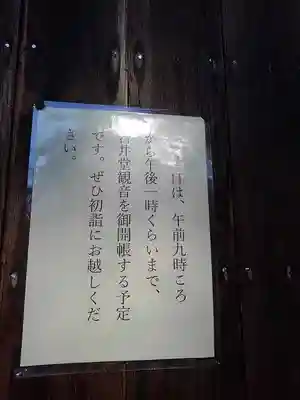 日は、午前九時ころ
から午後一時くらいまで、
井堂観音を御開帳する予定
です。ぜひ初詣にお越しくだ
さい。